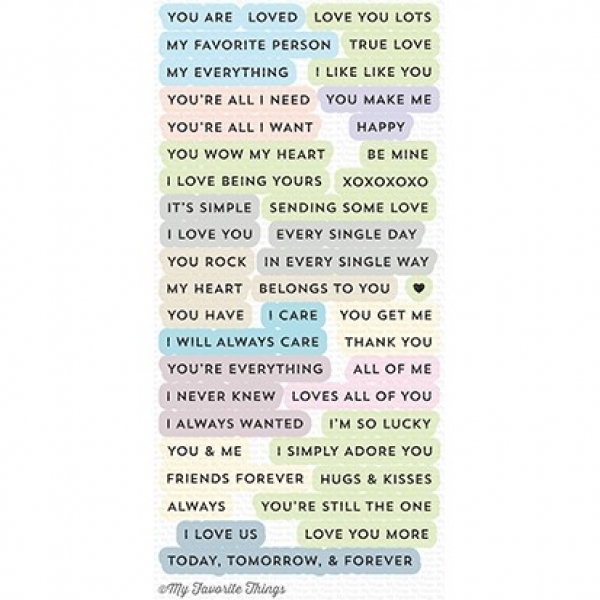 YOU ARE LOVED LOVE YOU LOTS
MY FAVORITE PERSON TRUE LOVE
MY EVERYTHING I LIKE LIKE YOU
YOU'RE ALL I NEED YOU MAKE ME
YOU'RE ALL I WANT HAPPY
YOU WOW MY HEART BE MINE
I LOVE BEING YOURS XOXOXOXO
IT'S SIMPLE SENDING SOME LOVE
I LOVE YOU EVERY SINGLE DAY
YOU ROCK IN EVERY SINGLE WAY
MY HEART BELONGS TO YOU ♥
YOU HAVE I CARE YOU GET ME
I WILL ALWAYS CARE THANK YOU
YOU'RE EVERYTHING ALL OF ME
I NEVER KNEW LOVES ALL OF YOU
I ALWAYS WANTED I'M SO LUCKY
YOU & ME I SIMPLY ADORE YOU
FRIENDS FOREVER HUGS & KISSES
ALWAYS YOU'RE STILL THE ONE
I LOVE US LOVE YOU MORE
TODAY, TOMORROW, & FOREVER
©My Favorite Things